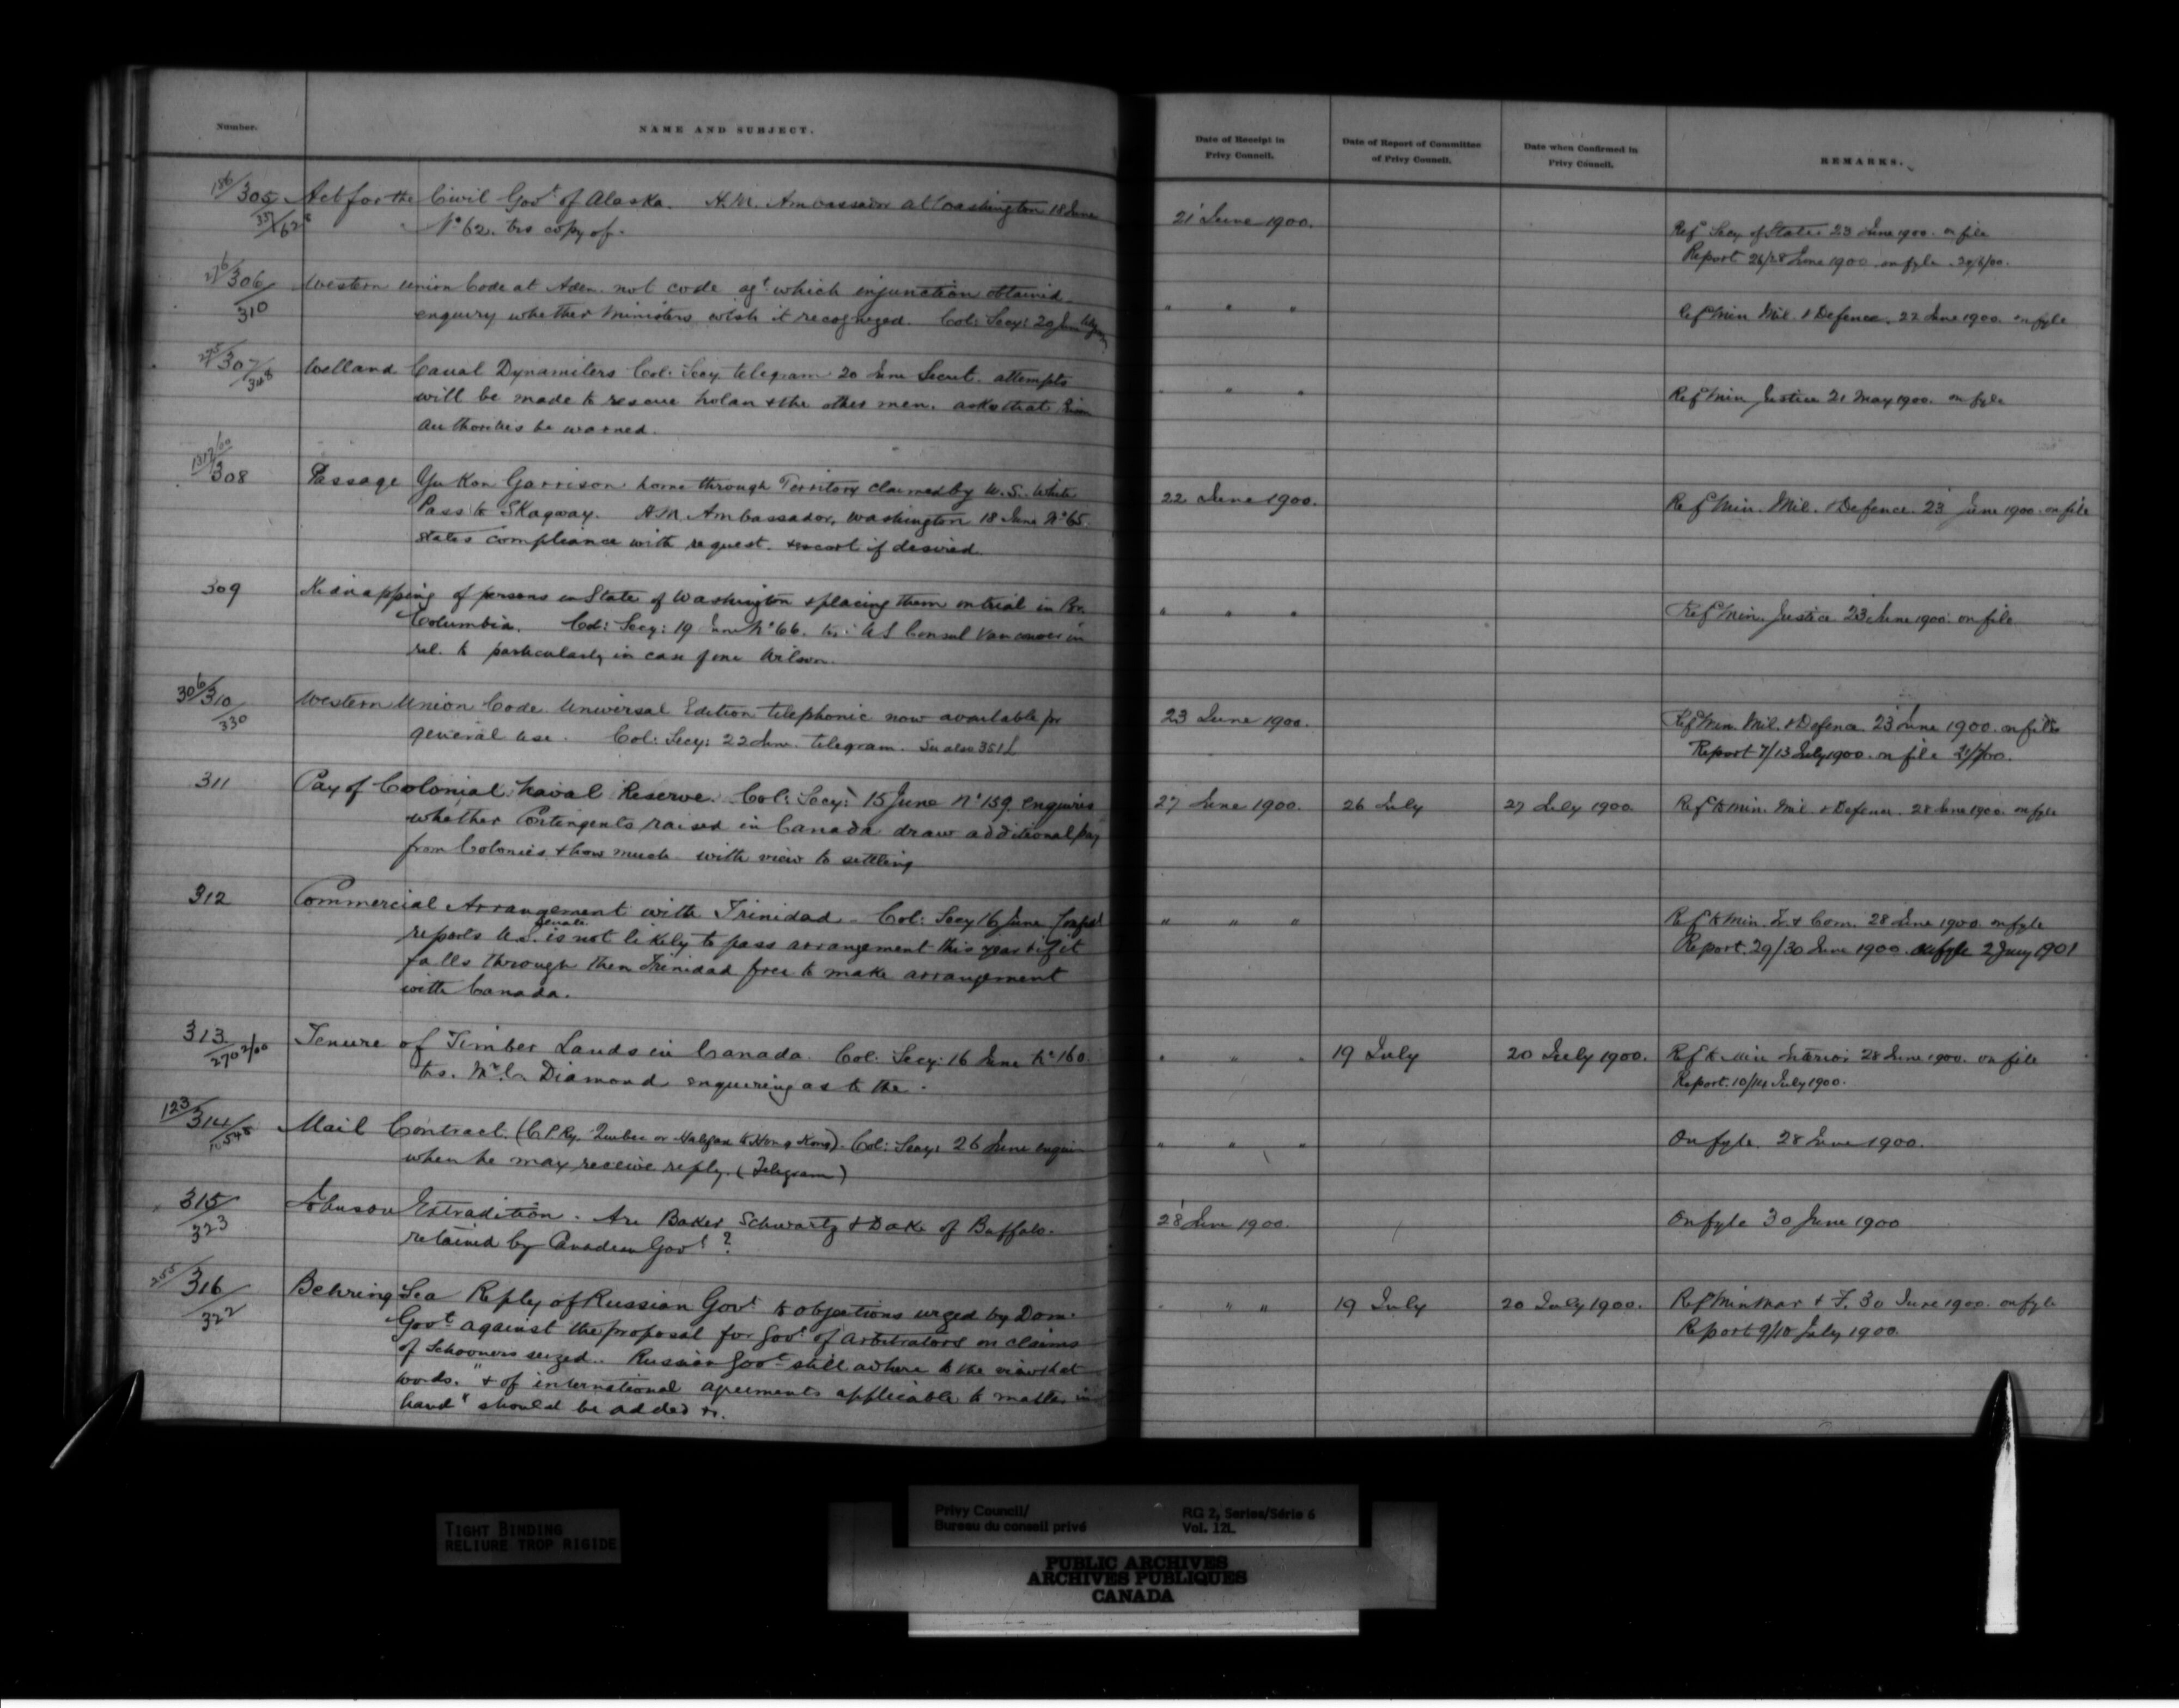 Number.
NAME AND SUBJECT.
Date of Receipt in
Privy Council.
Date of Report of Committee
of Privy Council.
Date when Confirmed in
Privy Council.
REMARKS.
186/305
Act for the Civil Govt of Alaska. H.M. Ambassador at Washington 18 June
No 62. trs copy of.
21 June 1900.
Refd Secy of State 23 June 1900. on file
Report 26/28 June 1900. on fyle
276/306/310
Western Union Code at Aden not code agt which injunction obtained
enquiry whether Ministers wish it recognized. Col: Secy: 20 June
" " "
Refd Min Mil. & Defence. 22 June 1900. on fyle
307/348
Welland Canal Dynamiters Col: Secy. telegram 20 June Secret. attempts
will be made to rescue Nolan & the other men. asks that
authorities be warned.
" " "
Refd Min Justice 21 May 1900. on fyle
308
Passage Yukon Garrison home through Territory claimed by U.S. White
Pass to Skagway. H.M. Ambassador, Washington 18 June No 65.
states compliance with request. & escort if desired.
22 June 1900.
Refd Min. Mil. & Defence. 23 June 1900. on file
309
Kidnapping of persons in State of Washington & placing them on trial in Br.
Columbia. Col: Secy: 19 June No 66. trs: US Consul Vancouver in
rel. to particularly in case of one Wilson.
" " "
Refd Min. Justice 23 June 1900. on file
306/310/330
Western Union Code Universal Edition telephonic now available for
general use. Col: Secy: 22 June. telegram. See also 351 L
23 June 1900.
Refd Min. Mil. & Defence 23 June 1900. on file
Report 7/13 July 1900. on file
311
Pay of Colonial Naval Reserve. Col: Secy: 15 June No 159 enquires
whether Contingents raised in Canada draw additional pay
from Colonies & how much with view to settling
27 June 1900.
26 July
27 July 1900.
Refd to Min. Mil. & Defence. 28 June 1900. on fyle
312
Commercial Arrangement with Trinidad. Col: Secy 16 June Confdl
reports U.S. Senate is not likely to pass arrangement this year & if it
falls through then Trinidad free to make arrangement
with Canada.
" " "
Refd to Min. T. & Com. 28 June 1900. on fyle
Report. 29/30 June 1900. on fyle 2 Jany 1901
313
Tenure of Timber Lands in Canada. Col: Secy: 16 June No 160
trs. Mr. Diamond enquiring as to the.
" " "
19 July
20 July 1900.
Refd to Min Interior 28 June 1900. on file
Report. 10/14 July 1900.
123/314
Mail Contract. (C.P.Ry. Quebec or Halifax to Hong Kong). Col: Secy: 26 June enquires
when he may receive reply. (Telegram)
" " "
On fyle. 28 June 1900.
315/323
Johnson Extradition. Are Baker Schwartz & Dake of Buffalo.
retained by Canadian Govt ?
28 June 1900.
On fyle 30 June 1900
255/316/322
Behring Sea Reply of Russian Govt to objections urged by Dom.
Govt against the proposal for Govt of Arbitrators on claims
of Schooners seized. Russian Govt still adhere to the view that
words. " & of international agreements applicable to matter in
hand" should be added &c.
" " "
19 July
20 July 1900.
Refd Min Mar & F. 30 June 1900. on fyle
Report 9/10 July 1900.
TIGHT BINDING
RELIURE TROP RIGIDE
Privy Council/
Bureau du conseil privé
RG 2, Series/Série 6
Vol. 121
PUBLIC ARCHIVES
ARCHIVES PUBLIQUES
CANADA